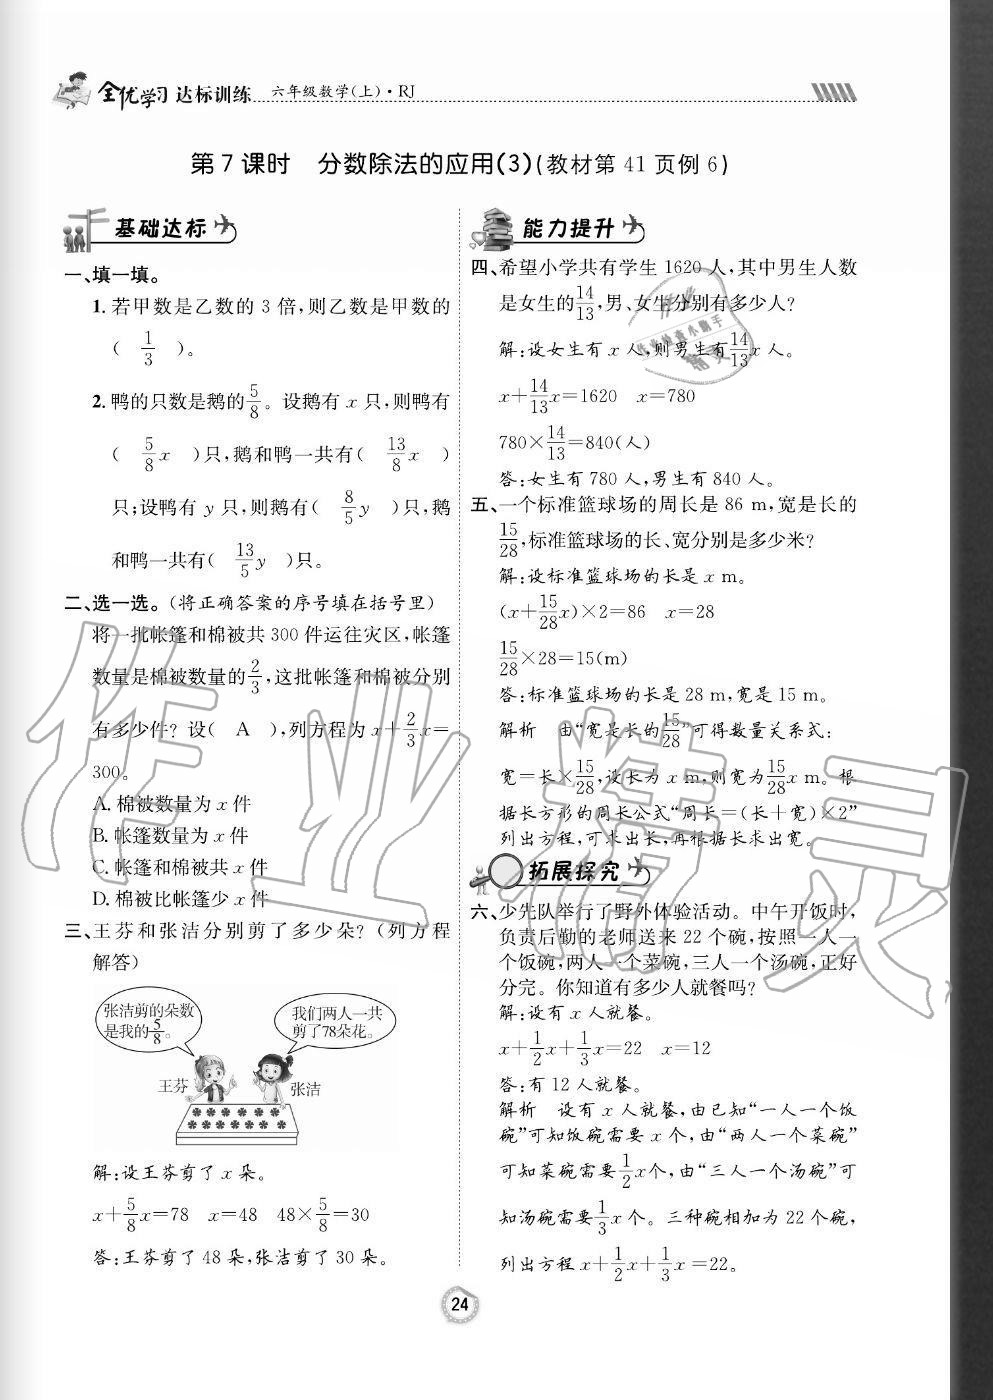 全优学习 达标训练 六年级数学(上)·RJ
第7课时 分数除法的应用(3)(教材第41页例6)
基础达标
一、填一填。
1. 若甲数是乙数的3倍,则乙数是甲数的
( 1/3 )。
2. 鸭的只数是鹅的5/8。设鹅有x只,则鸭有
( 5/8x )只,鹅和鸭一共有( 13/8x )
只;设鸭有y只,则鹅有( 8/5y )只,鹅
和鸭一共有( 13/5y )只。
二、选一选。(将正确答案的序号填在括号里)
将一批帐篷和棉被共300件运往灾区,帐篷
数量是棉被数量的2/3,这批帐篷和棉被分别
有多少件? 设( A ),列方程为x+2/3x=
300。
A. 棉被数量为x件
B. 帐篷数量为x件
C. 帐篷和棉被共x件
D. 棉被比帐篷少x件
三、王芬和张洁分别剪了多少朵?(列方程
解答)
张洁剪的朵数
是我的5/8。
我们两人一共
剪了78朵花。
王芬
张洁
解:设王芬剪了x朵。
x+5/8x=78 x=48 48×5/8=30
答:王芬剪了48朵,张洁剪了30朵。
能力提升
四、希望小学共有学生1620人,其中男生人数
是女生的14/13,男、女生分别有多少人?
解:设女生有x人,则男生有14/13x人。
x+14/13x=1620 x=780
780×14/13=840(人)
答:女生有780人,男生有840人。
五、一个标准篮球场的周长是86 m,宽是长的
15/28,标准篮球场的长、宽分别是多少米?
解:设标准篮球场的长是x m。
(x+15/28x)×2=86 x=28
15/28×28=15(m)
答:标准篮球场的长是28 m,宽是15 m。
解析 由“宽是长的15/28”可得数量关系式:
宽=长×15/28,设长为x m,则宽为15/28x m。根
据长方形的周长公式“周长=(长+宽)×2”
列出方程,可求出长,再根据长求出宽。
拓展探究
六、少先队举行了野外体验活动。中午开饭时,
负责后勤的老师送来22个碗,按照一人一
个饭碗,两人一个菜碗,三人一个汤碗,正好
分完。你知道有多少人就餐吗?
解:设有x人就餐。
x+1/2x+1/3x=22 x=12
答:有12人就餐。
解析 设有x人就餐,由已知“一人一个饭
碗”可知饭碗需要x个,由“两人一个菜碗”
可知菜碗需要1/2x个,由“三人一个汤碗”可
知汤碗需要1/3x个。三种碗相加为22个碗,
列出方程x+1/2x+1/3x=22。
24
作业精灵